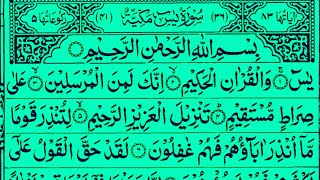 اٰیاتُهَا ۸۳ (۳۶) سُوْرَةُ یٰسٓ مَكِّیَّةٌ (۴۱) رُكُوْعَاتُهَا ۵
بِسْمِ اللّٰهِ الرَّحْمٰنِ الرَّحِیْمِ
یٰسٓ ۚ وَالْقُرْاٰنِ الْحَكِیْمِ ۙ اِنَّكَ لَمِنَ الْمُرْسَلِیْنَ ۙ عَلٰی
صِرَاطٍ مُّسْتَقِیْمٍ ؕ تَنْزِیْلَ الْعَزِیْزِ الرَّحِیْمِ ۙ لِتُنْذِرَ قَوْمًا
مَّاۤ اُنْذِرَ اٰبَآؤُهُمْ فَهُمْ غٰفِلُوْنَ ۝ لَقَدْ حَقَّ الْقَوْلُ عَلٰۤی